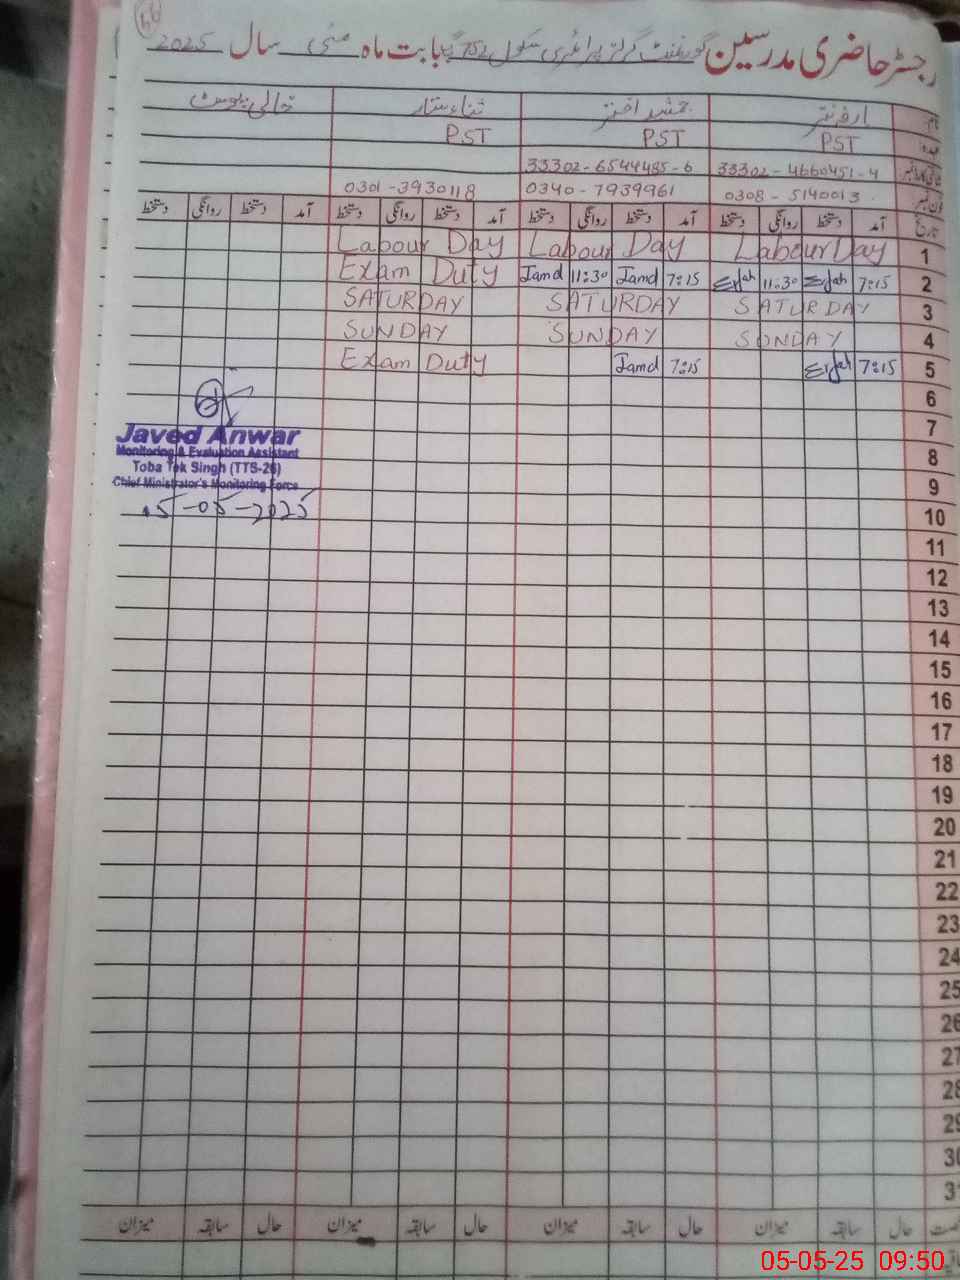 رجسٹر حاضری مدرسین گورنمنٹ گرلز پرائمری سکول 752 گ ب بابت ماہ مئی سال 2025
نام جمشید اختر ثناء ستار خالی پوسٹ
عہدہ PST PST PST
33302-4660451-4 33302-6544485-6
فون نمبر 0308-5140013 0340-7939961 0301-3930118
تاریخ آمد دستخط روانگی دستخط آمد دستخط روانگی دستخط آمد دستخط روانگی دستخط آمد دستخط روانگی دستخط
1 Labour Day Labour Day Labour Day
2 7:15 Erfah 11:30 Erfah 7:15 Jamd 11:30 Jamd Exam Duty
3 SATURDAY SATURDAY SATURDAY
4 SUNDAY SUNDAY SUNDAY
5 7:15 Erfah 7:15 Jamd Exam Duty
6
7
8
9
10
11
12
13
14
15
16
17
18
19
20
21
22
23
24
25
26
27
28
29
30
31
Javed Anwar
Monitoring & Evaluation Assistant
Toba Tek Singh (TTS-26)
Chief Minister's Monitoring Force
05-05-2025
حال سابقہ میزان حال سابقہ میزان حال سابقہ میزان حال سابقہ میزان
05-05-25 09:50